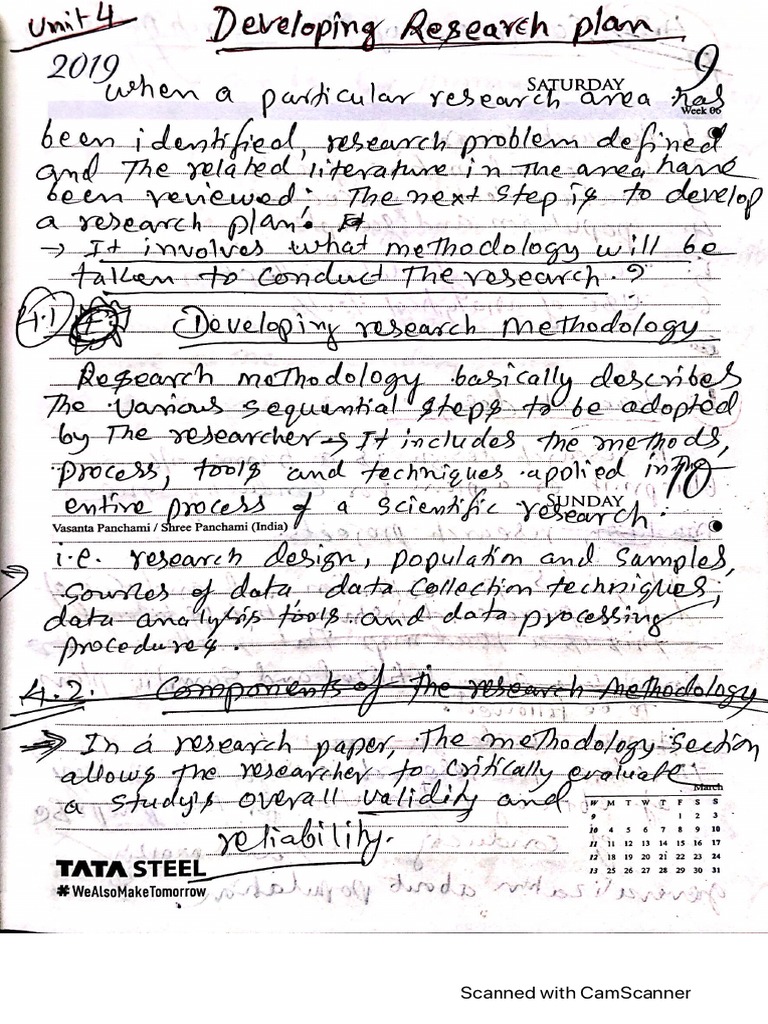 Unit 4 Developing Research plan
2019 SATURDAY 9
When a particular research area has
Week 06
been identified, research problem defined
and The related literature in The area have
been reviewed: The next step is to develop
a research plan!
→ It involves what methodology will be
taken to conduct The research.?
4.1 Developing research Methodology
Research methodology basically describes
The various sequential steps to be adopted
by The researcher → It includes the methods,
process, tools and techniques applied in
10
entire process of a scientific research.
SUNDAY
Vasanta Panchami / Shree Panchami (India)
i.e. research design, population and samples,
sources of data, data collection techniques,
data analysis tools and data processing
procedures.
4.2. Components of The research Methodology
⇒ In a research paper, The methodology section
allows the researcher to critically evaluate
a study's overall validity and
reliability.
March
W M T W T F S S
9 1 2 3
10 4 5 6 7 8 9 10
11 11 12 13 14 15 16 17
12 18 19 20 21 22 23 24
13 25 26 27 28 29 30 31
TATA STEEL
# WeAlsoMakeTomorrow
Scanned with CamScanner